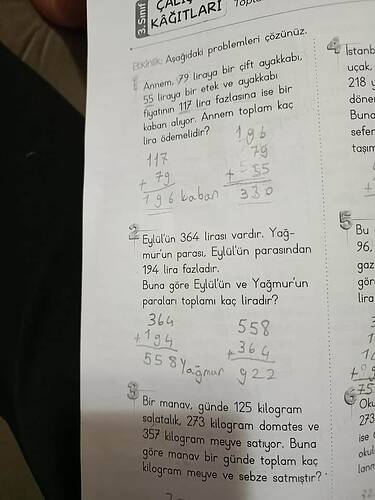 3.Sınıf
ÇALIŞ
KÂĞITLARI
Topla
Etkinlik: Aşağıdaki problemleri çözünüz.
1
Annem, 79 liraya bir çift ayakkabı,
55 liraya bir etek ve ayakkabı
fiyatının 117 lira fazlasına ise bir
kaban alıyor. Annem toplam kaç
lira ödemelidir?
117
+ 79
196 kaban
196
79
+ 55
330
2
Eylül'ün 364 lirası vardır. Yağ-
mur'un parası, Eylül'ün parasından
194 lira fazladır.
Buna göre Eylül'ün ve Yağmur'un
paraları toplamı kaç liradır?
364
+ 194
558 Yağmur
558
+ 364
922
3
Bir manav, günde 125 kilogram
salatalık, 273 kilogram domates ve
357 kilogram meyve satıyor. Buna
göre manav bir günde toplam kaç
kilogram meyve ve sebze satmıştır?
4
İstanb
uçak,
218 y
döner
Buna
sefer
taşım
5
Bu
96,
gaz
göre
lira
75
6
Oku
273
ise
okulu
lanm